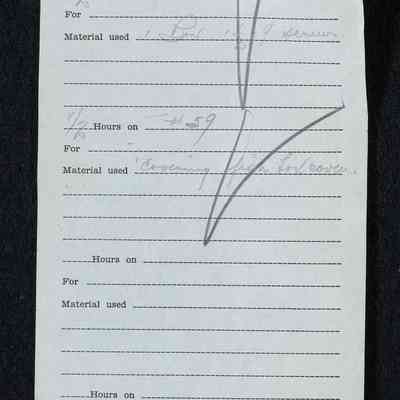 For
Material used 1 Box 1 1/2 9 screws
1/2 Hours on # 59
For
Material used Covering for
Hours on
For
Material used
Hours on